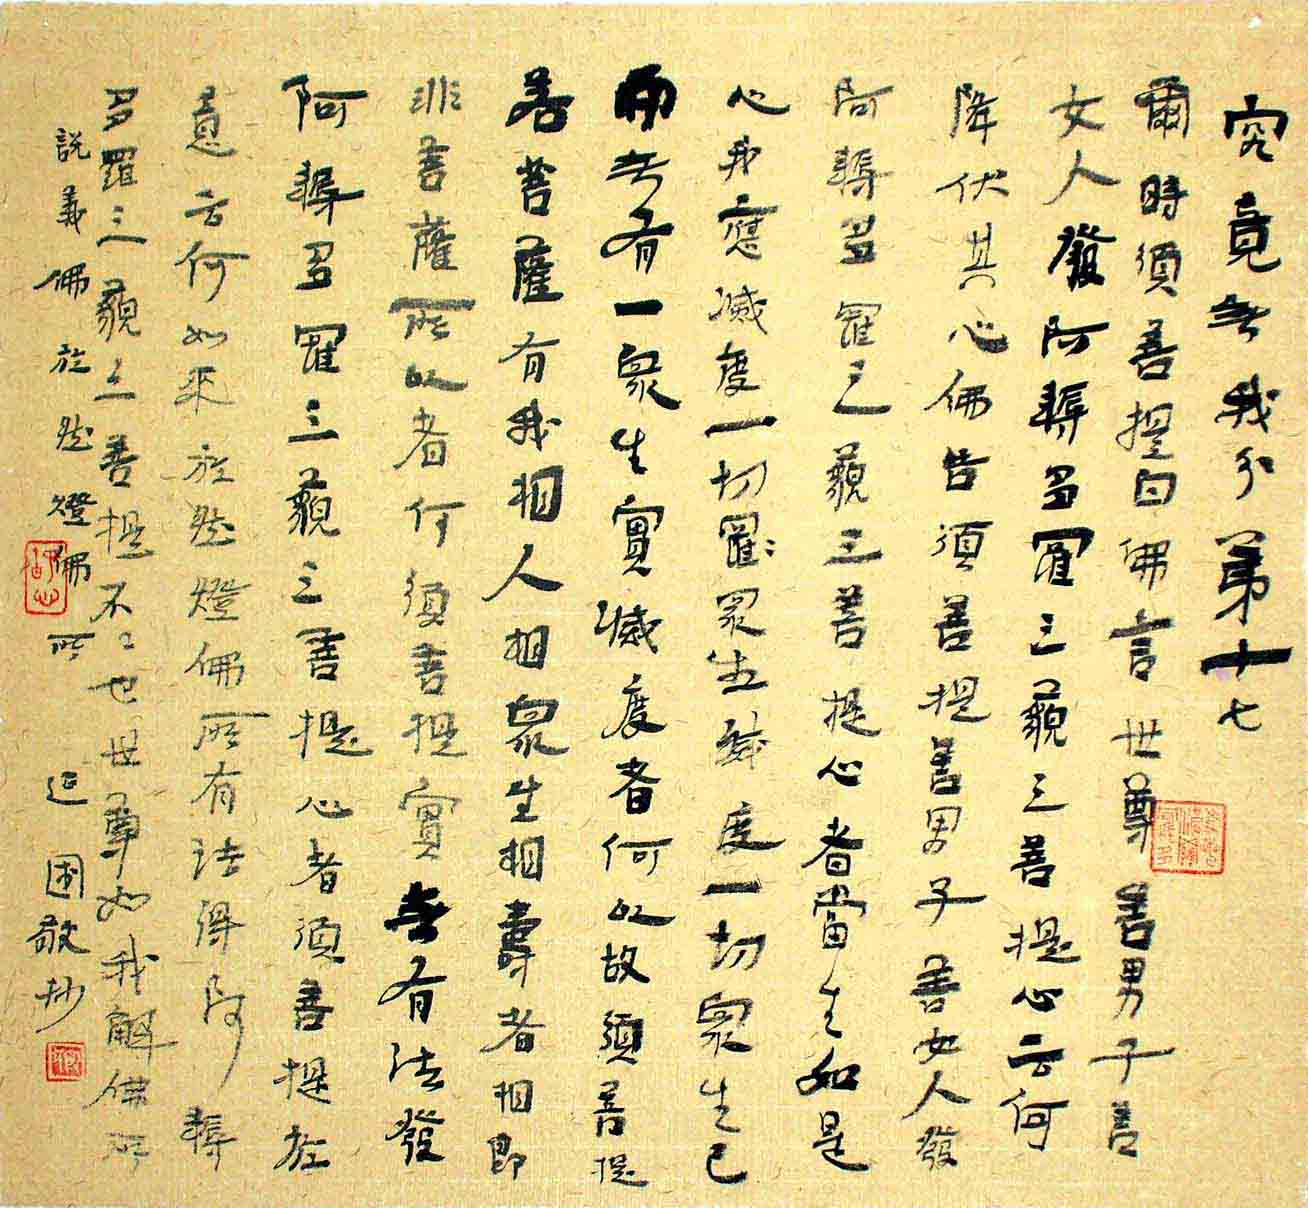 究竟無我分第十七
爾時須菩提白佛言世尊善男子善
女人發阿耨多羅三藐三菩提心云何
降伏其心佛告須菩提善男子善女人發
阿耨多羅三藐三菩提心者當生如是
心我應滅度一切羅眾生滅度一切眾生已
而無有一眾生實滅度者何以故須菩提
若菩薩有我相人相眾生相壽者相即
非菩薩所以者何須菩提實無有法發
阿耨多羅三藐三菩提心者須菩提於
意云何如來於然燈佛所有法得阿耨
多羅三藐三菩提不〻也世尊如我解佛所
說義佛於然燈佛所 敬抄